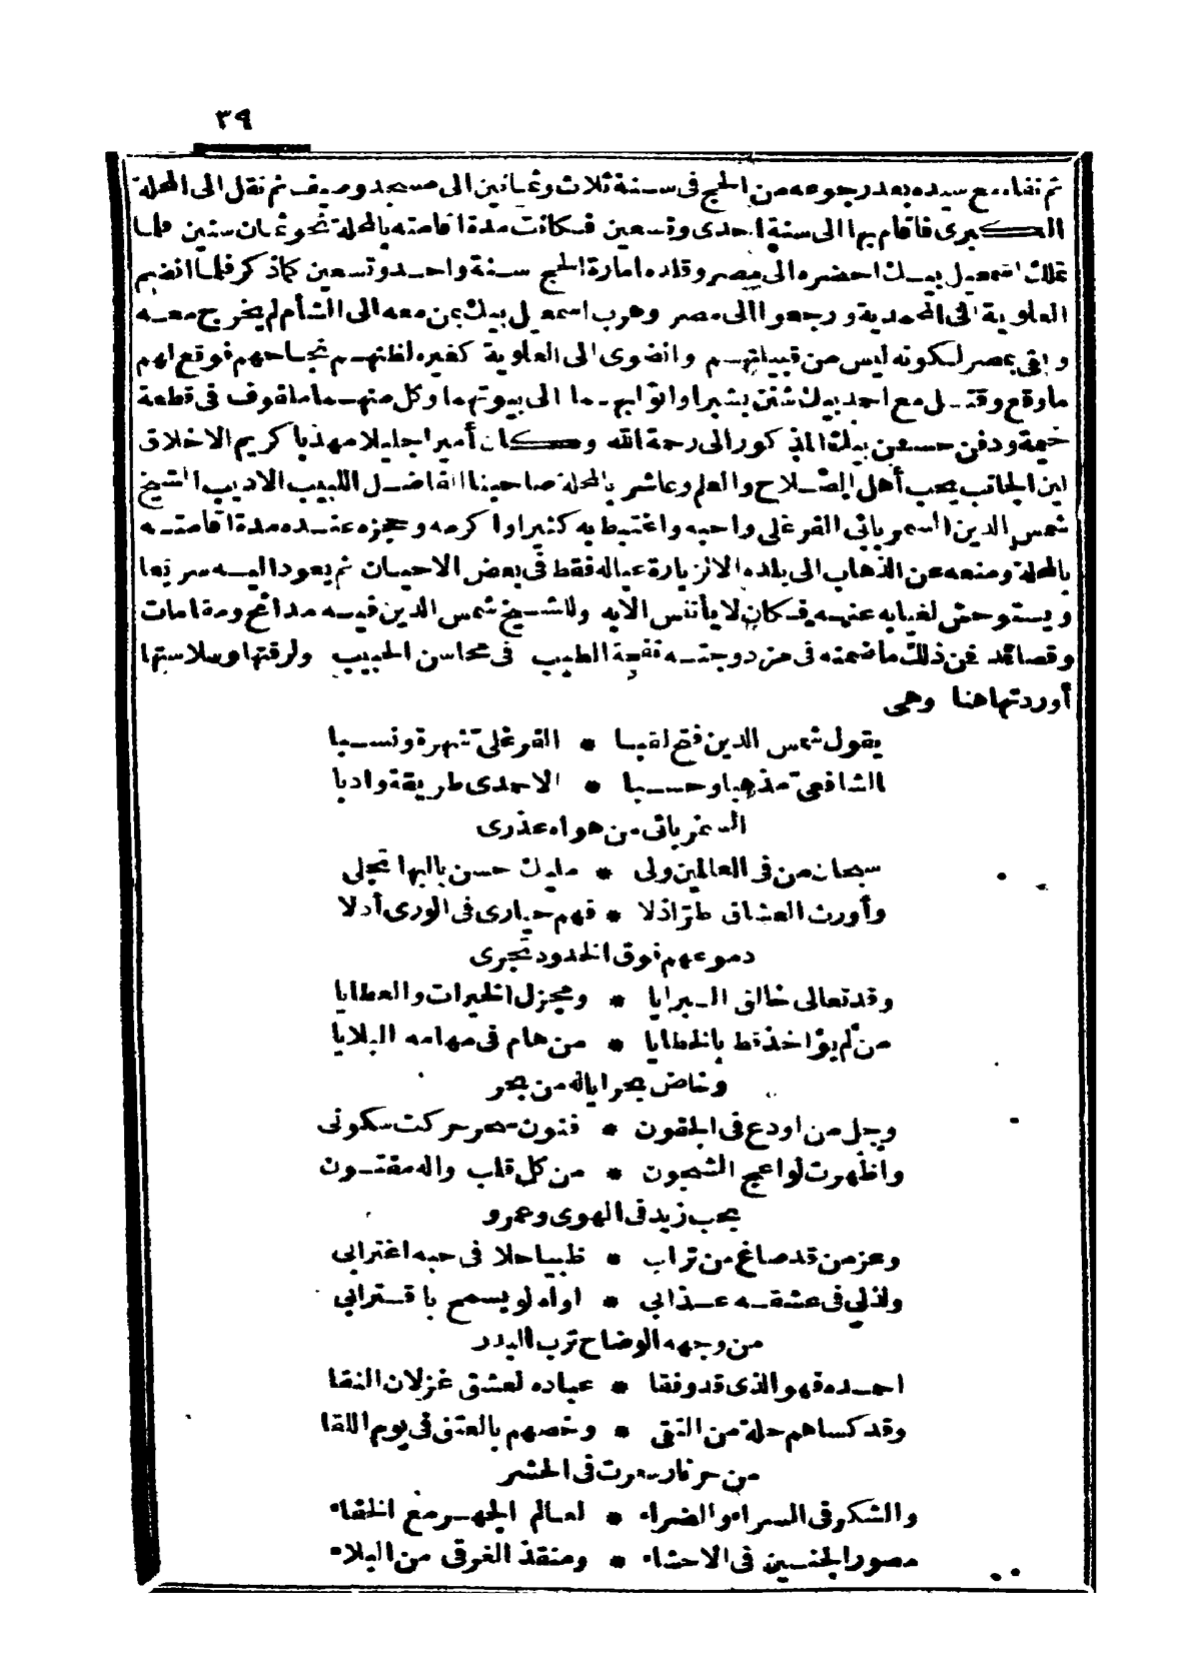 ٣٩
ثم نفاه مع سيده بعد رجوعه من الحج فى سنة ثلاث وثمانين الى مسجد وصيف ثم نقل الى المحلة
الكبرى فاقام بها الى سنة احدى وتسعين فكانت مدة اقامته بالمحلة نحو ثمان سنين فلما
تملك اسمعيل بيك احضره الى مصر وقلده امارة الحج سنة واحد وتسعين كما ذكر فلما انضم
العلوية الى المحمدية ورجعوا الى مصر وهرب اسمعيل بيك بمن معه الى الشأم لم يخرج معه
وبقى بمصر لكونه ليس من قبيلتهم وانضوى الى العلوية كغيره لظنهم نجاحهم فوقع لهم
ما وقع وقتل مع احمد بيك شنن بشبرا واتوا بهما الى بيوتهما وكل منهما ملفوف فى قطعة
خيمة ودفن حسين بيك المذكور الى رحمة الله وكان أميرا جليلا مهذبا كريم الاخلاق
لين الجانب يحب أهل الصلاح والعلم وعاشر بالمحلة صاحبنا الفاضل اللبيب الاديب الشيخ
شمس الدين السمربائى الفرغلى واحبه واغتبط به كثيرا واكرمه وحجزه عنده مدة اقامته
بالمحلة ومنعه عن الذهاب الى بلده الا لزيارة عياله فقط فى بعض الاحيان ثم يعود اليه سريعا
ويستوحش لغيابه عنه فكان لا يأتنس الا به وللشيخ شمس الدين فيه مدائح ومقامات
وقصائد فمن ذلك ما ضمنه فى مزدوجته نفحة الطيب فى محاسن الحبيب ولرقتها وسلاستها
أوردتها هنا وهى
يقول شمس الدين فتح لقبا * الفرغلى شهرة ونسبا
الشافعى مذهبا وحسبا * الاحمدى طريقة وادبا
السمربائى من هواه عذرى
سبحان من فى العالمين ولى * مليك حسن بالبها تجلى
وأورث العشاق طرا ذلا * فهم حيارى فى الورى أدلا
دموعهم فوق الخدود تجرى
وقد تعالى خالق البرايا * ومجزل الخيرات والعطايا
من لم يؤاخذ قط بالخطايا * من هام فى مهامه البلايا
وخاض بحرا ياله من بحر
وجل من اودع فى الجفون * فنون سحر حركت سكونى
واظهرت لواعج الشجون * من كل قلب واله مفتون
يحب زيد فى الهوى وعمرو
وعز من قد صاغ من تراب * ظبيا حلا فى حبه اغترابى
ولذلى فى عشقه عذابى * اواه لو يسمح باقترابى
من وجهه الوضاح ترب البدر
احمده فهو الذى قد وفقا * عباده لعشق غزلان النقا
وقد كساهم حلة من التقى * وخصهم بالعتق فى يوم اللقا
من حر نار سعرت فى الحشر
والشكر فى السراء والضراء * لعالم الجهر مع الخفاء
مصور الجنين فى الاحشاء * ومنقذ الغرقى من البلاء